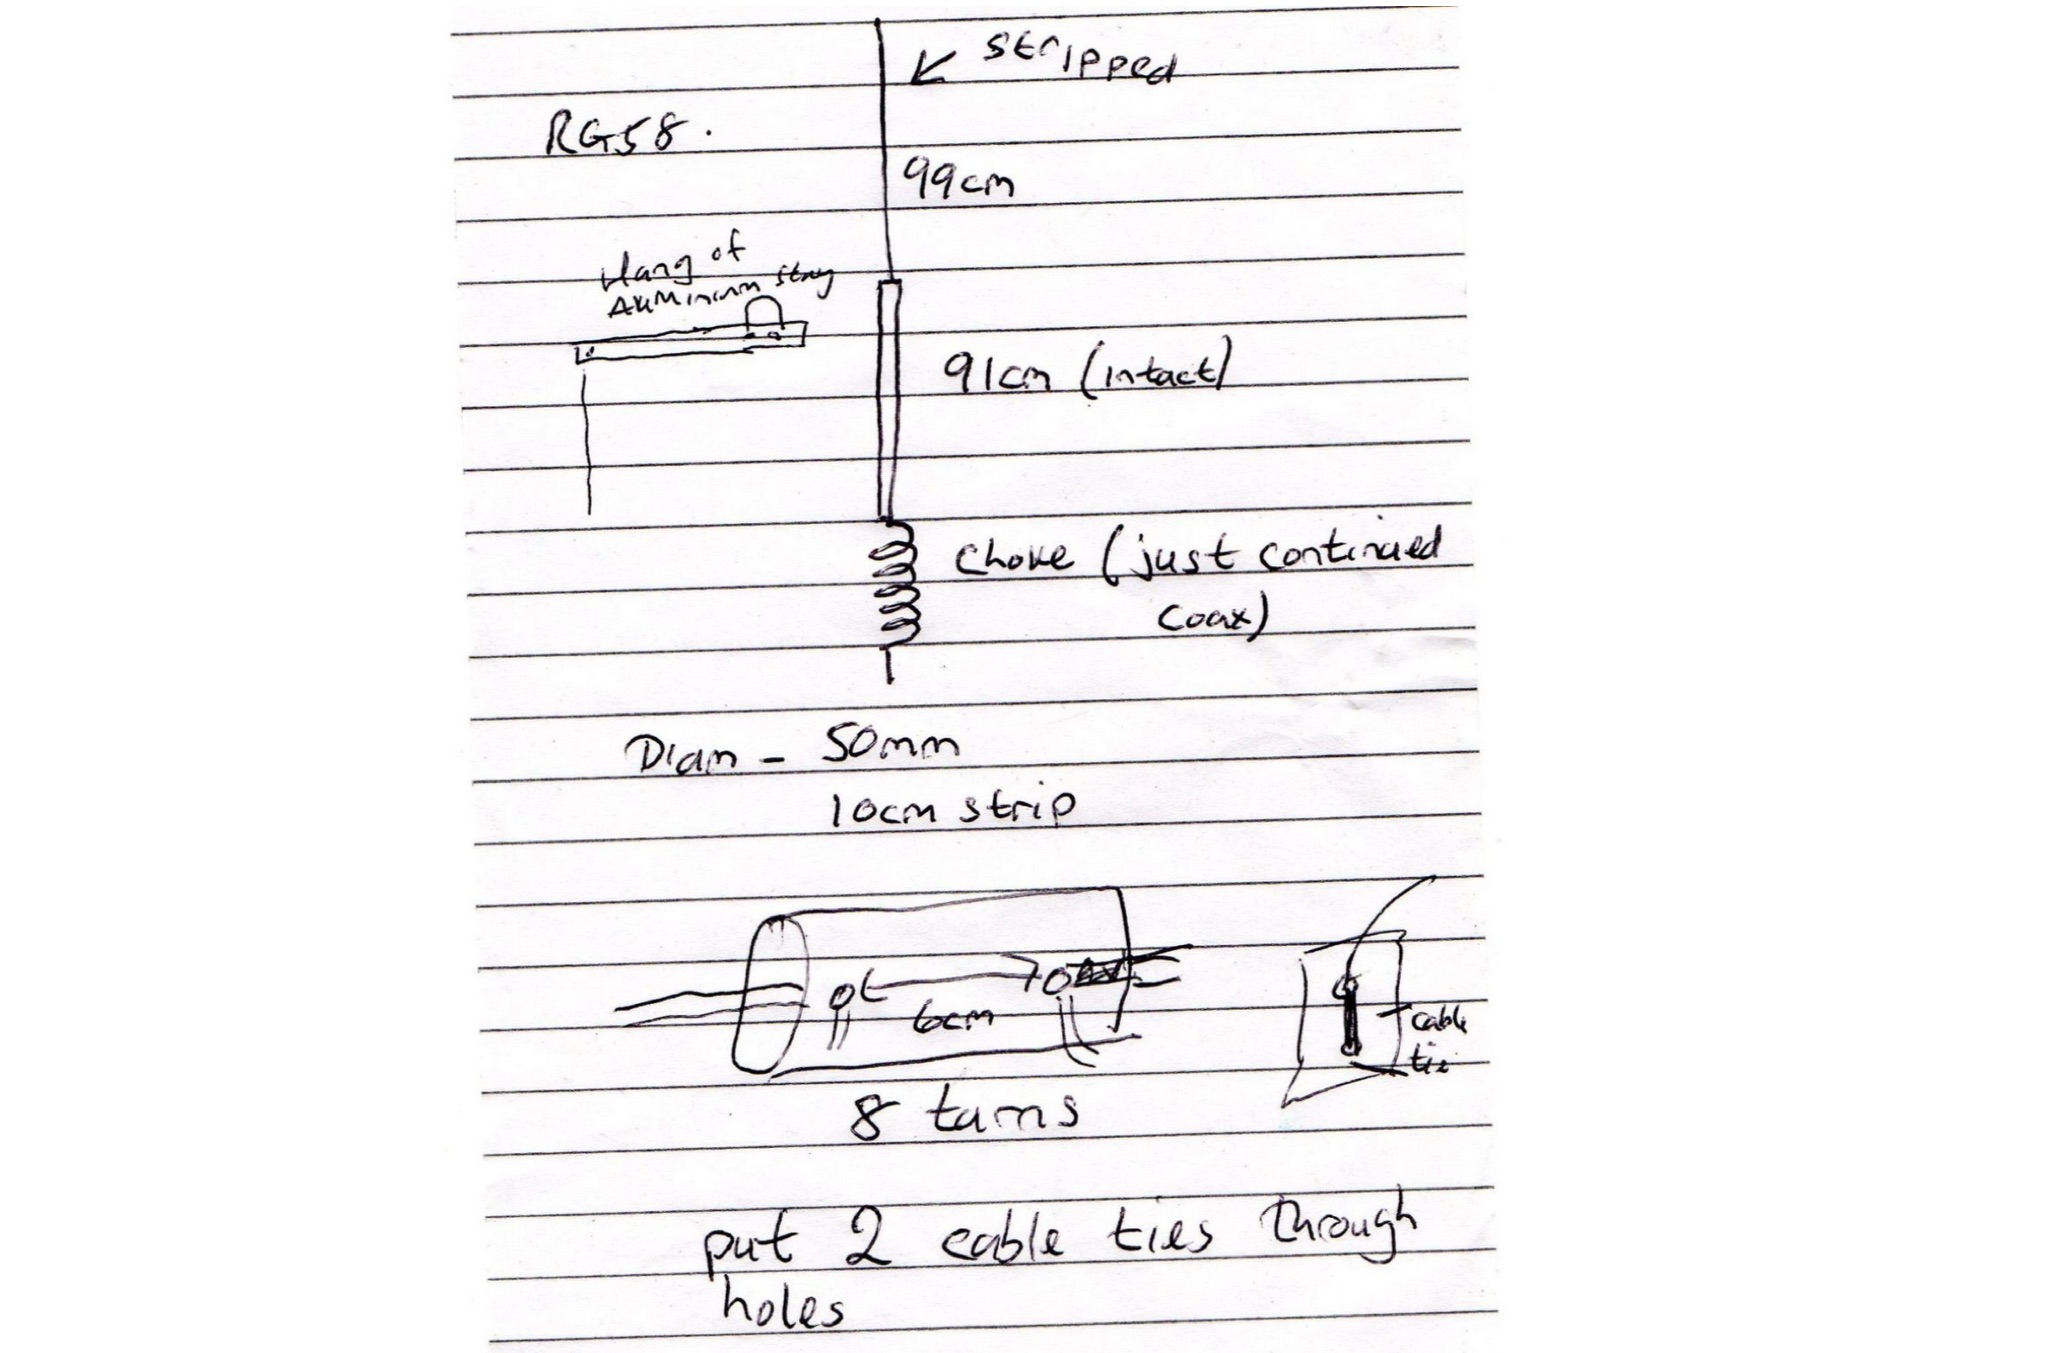 stripped
RG58.
99cm
Hang of
Aluminium stay
91cm (intact)
Choke (just continued
coax)
Diam - 50mm
10cm strip
6cm
cable
tie
8 turns
put 2 cable ties through
holes